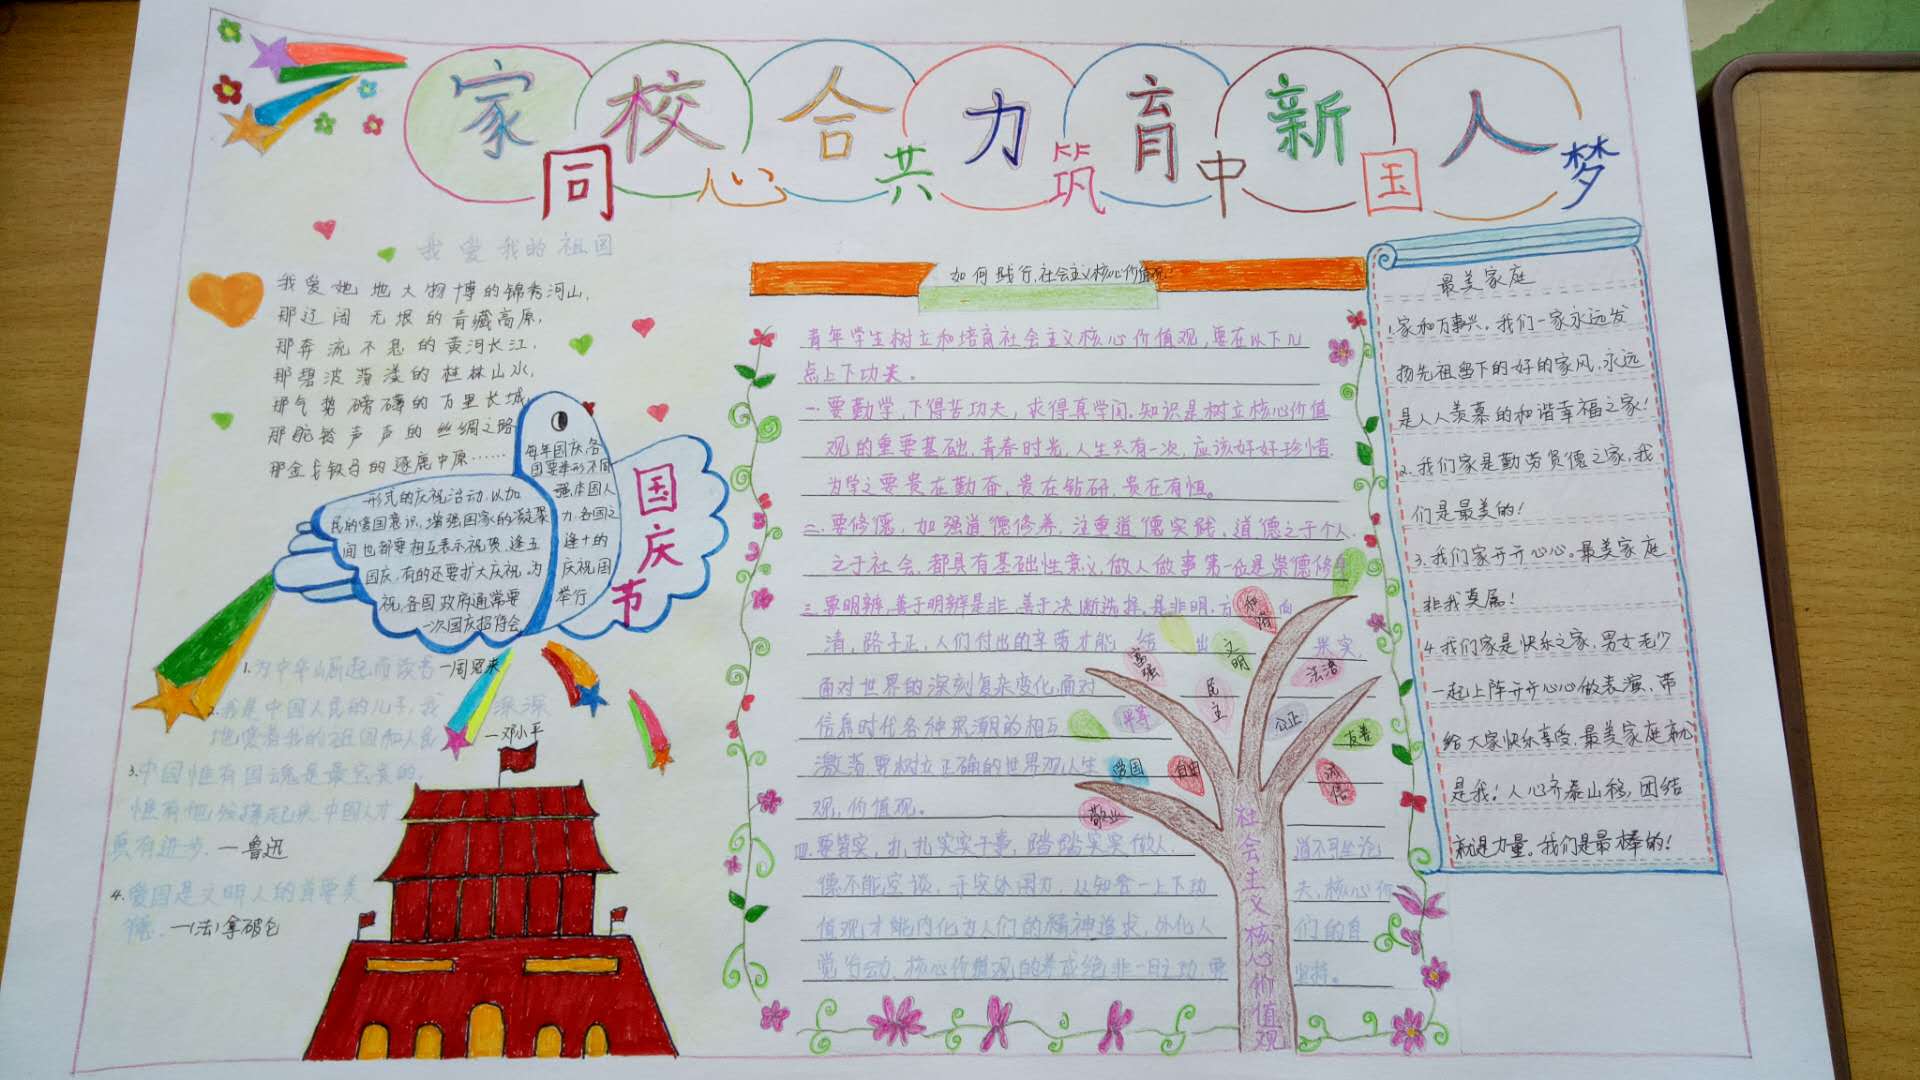 家校合力育新人
同心共筑中国梦
我爱我的祖国
我爱她地大物博的锦秀河山,
那辽阔无垠的青藏高原,
那奔流不息的黄河长江,
那碧波荡漾的桂林山水,
那气势磅礴的万里长城,
那驼铃声声的丝绸之路
那金戈铁马的逐鹿中原……
国庆节
每年国庆,各
国要举形不同
形式的庆祝活动,以加
强本国人
民的爱国意识,增强国家的凝聚
力,各国之
间也都要相互表示祝贺,逢五
逢十的
国庆,有的还要扩大庆祝,为
庆祝国
祝,各国政府通常要
举行
一次国庆招待会
1.为中华崛起而读书 —周恩来
2.我是中国人民的儿子,我深深
地爱着我的祖国和人民
—邓小平
3.中国惟有国魂是最宝贵的,
惟有他发扬起来,中国人才
真有进步. —鲁迅
4.爱国是文明人的首要美
德. —(法)拿破仑
如何践行社会主义核心价值观
青年学生树立和培育社会主义核心价值观,要在以下几
点上下功夫。
一.要勤学,下得苦功夫,求得真学问.知识是树立核心价值
观的重要基础,青春时光,人生只有一次,应该好好珍惜.
为学之要贵在勤奋,贵在钻研,贵在有恒。
二.要修德,加强道德修养,注重道德实践,道德之于个人,
之于社会,都具有基础性意义,做人做事第一位是崇德修
三.要明辨,善于明辨是非,善于决断选择.是非明,方向
清,路子正,人们付出的辛劳才能结出果实,
面对世界的深刻复杂变化,面对
信息时代各种思潮的相互
激荡要树立正确的世界观人生
观,价值观。
四.要笃实,扎扎实实干事,踏踏实实做人.道不可坐论,
德不能空谈,于实处用力,从知合一上下功夫,核心价
值观才能内化为人们的精神追求,外化人们的自
觉行动,核心价值观的养成绝非一日之功,要坚持。
和谐
文明
富强
法治
民主
平等
公正
友善
爱国
自由
诚信
敬业
社会主义核心价值观
最美家庭
1.家和万事兴。我们一家永远发
扬先祖留下的好的家风,永远
是人人羡慕的和谐幸福之家!
2.我们家是勤劳贤德之家,我
们是最美的!
3.我们家开开心心。最美家庭
非我莫属!
4.我们家是快乐之家,男女老少
一起上阵开开心心做表演,带
给大家快乐享受,最美家庭就
是我!人心齐泰山移,团结
就是力量。我们是最棒的!